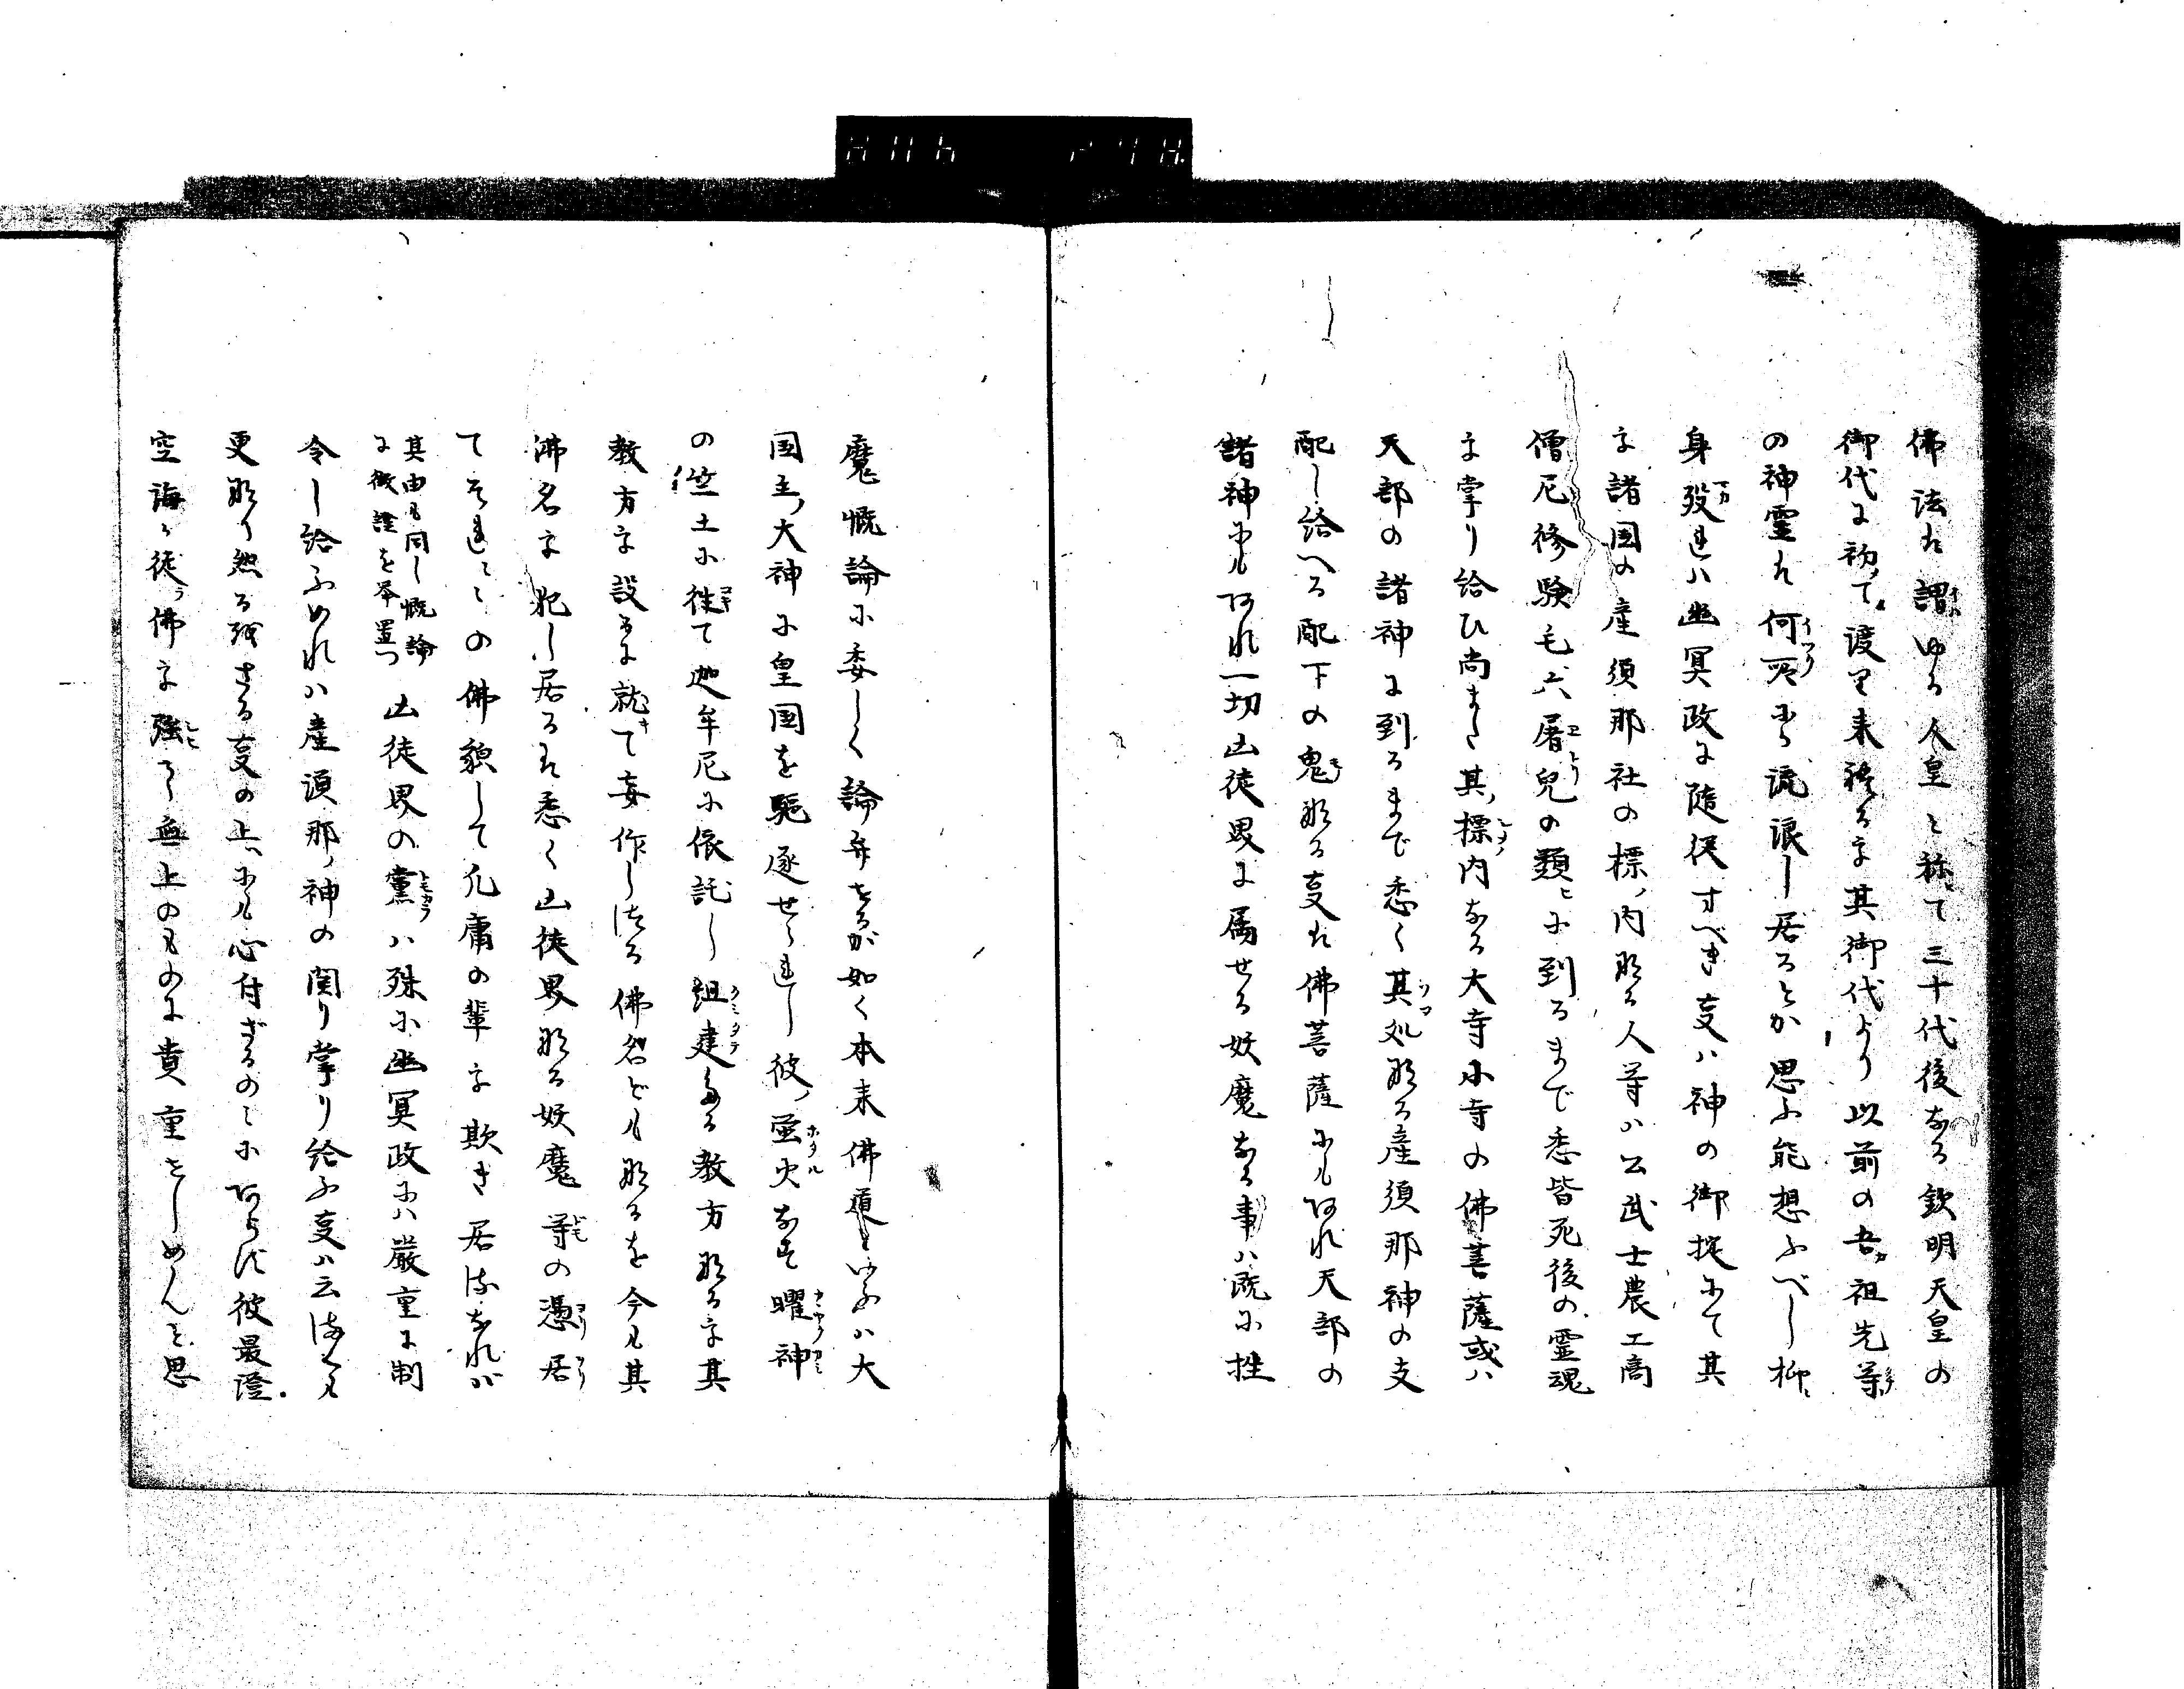 佛法は謂ゆる人皇と称て三十代後なる欽明天皇の
御代に初て渡り来れるを其御代より以前の吾祖先等
の神霊は何所に流浪し居るとか思ふ能想ふべし抑
身殁れハ幽冥政に随従すべき叓ハ神の御掟にて其
を諸国の産須那社の標内なる人等ハ公武士農工商
僧尼修験毛六屠兒の類に到るまで悉皆死後の霊魂
を掌り給ひ尚また其標内なる大寺小寺の佛菩薩或ハ
天部の諸神に到るまで悉く其処なる産須那神の支
配し給へる配下の鬼なる叓は佛菩薩にもあれ天部の
諸神にもあれ一切山徒界に属せる妖魔なる事ハ既に挫
魔慨論に委しく論弁せるが如く本来佛道といふハ大
国主大神に皇国を駈逐せられし彼螢火なす曜神
の竺土に徃て迦牟尼に依託し組建たる教方なるを其
教方を設るに就て妄作しける佛名ども なるを今も其
佛名を犯し居るは悉く山徒界なる妖魔等の憑居
てそれ〻の佛貌して凡庸の輩を欺き居るなれバ
其由も同し慨論
に徴証を挙置つ
山徒界の黨ハ殊に幽冥政にハ厳重に制
令し給ふめれハ産須那神の関り掌り給ふ叓ハ云までも
更なり然るをさる叓の上にも心付ざるのみにあらず彼最澄
空海の徒佛を強て無上のものに貴重せしめんと思